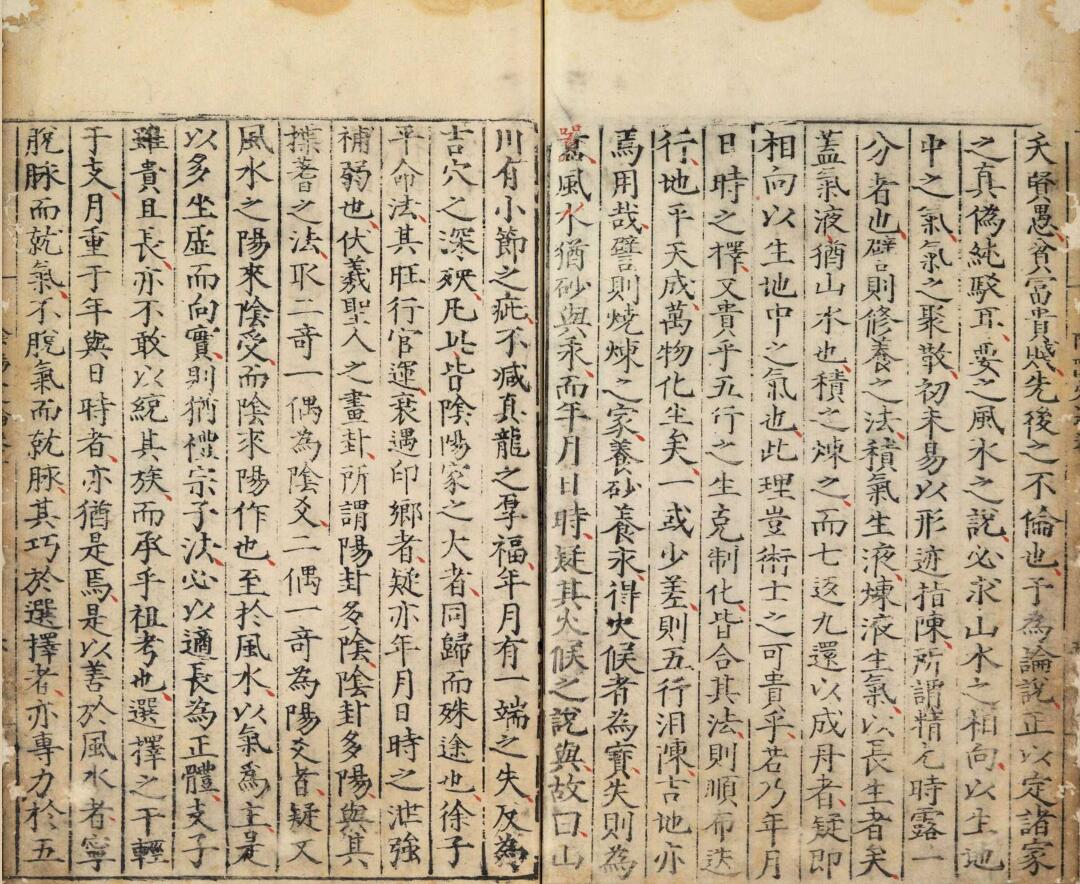 夭賢愚貧富貴賤先後之不倫也予為論說正以定諸家
之真偽純駁耳要之風水之說必求山水之相向以生地
中之氣氣之聚散初未易以形迹指陳所謂精光時露一
分者也譬則修養之法積氣生液煉液生氣以長生者矣
蓋氣液猶山水也積之煉之而七返九還以成丹者疑即
相向以生地中之氣也此理豈術士之可貴乎若乃年月
日時之擇又貴乎五行之生克制化皆合其法則順布迭
行地平天成萬物化生矣一或少差則五行汨陳吉地亦
焉用哉譬則燒煉之家養砂養汞得火候者為寶失則為
䵣風水猶砂與汞而年月日時疑其火候之說與故曰山
川有小節之疵不減真龍之厚福年月有一端之失反為
吉穴之深殃凡此皆陰陽家之大者同歸而殊途也徐子
平命法其旺行官運衰遇印鄉者疑亦年月日時之泄強
補弱也伏羲聖人之畫卦所謂陽卦多陰陰卦多陽與其
揲蓍之法取二奇一偶為陰爻二偶一奇為陽爻者疑又
風水之陽來陰受而陰來陽作也至於風水以氣為主是
以多坐虛而向實則猶禮宗子法必以適長為正體支子
雖貴且長亦不敢以統其族而承乎祖考也選擇之干輕
于支月重于年與日時者亦猶是焉是以善於風水者寧
脫脉而就氣不脫氣而就脉其巧於選擇者亦專力於五